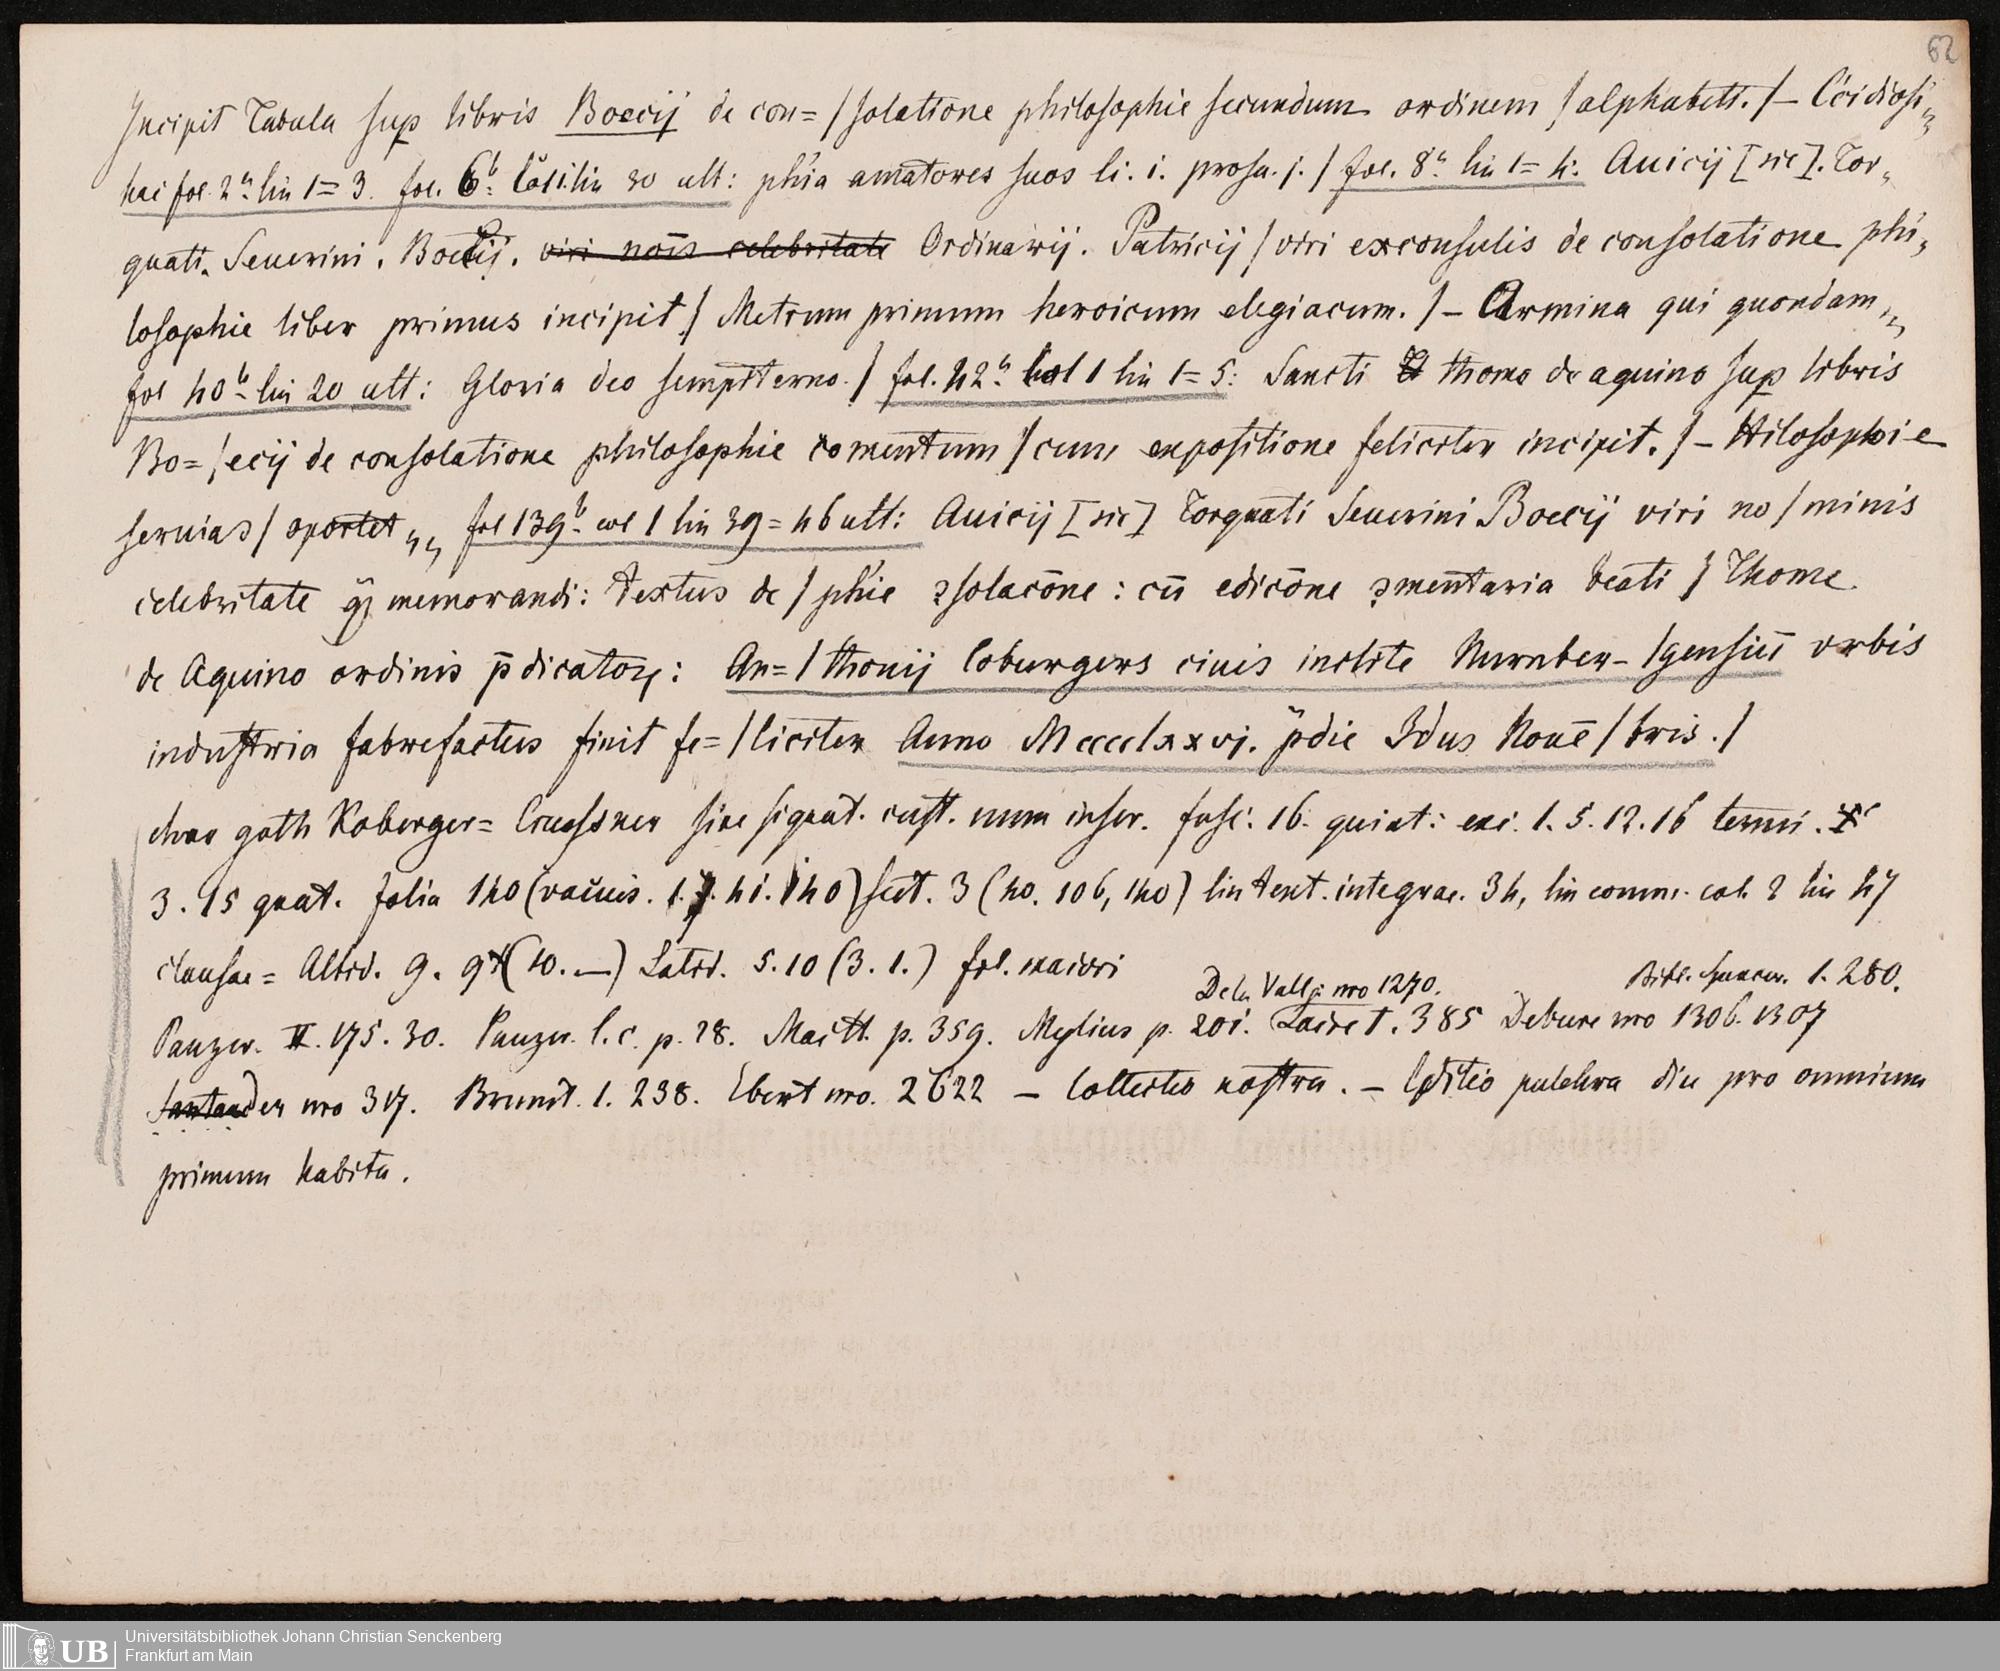 62
Incipit Tabula sup libris Boecij de con= / solatione philosophie secundum ordinem / alphabeti. / –
haec fol. 2a lin 1=3. fol. 6b lin 30 ult: phia amatores suos li. i. prosa. j. / fol. 8a lin 1=4: Anicij [sic]. Tor„
quati. Seuerini. Boetij. viri nois celebritate Ordinarij. Patricij / viri exconsulis de consolatione phi„
losophie liber primus incipit / Metrum primum heroicum elegiacum. / – Carmina qui quondam „„
fol 40b lin 20 ult: Gloria deo sempiterno. / fol. 42a col 1 lin 1=5: Sancti thome de aquino sup libris
Bo= / ecij de consolatione philosophie comentum / cum expositione feliciter incipit. / – Hilosophie
seruias / oportet „„ fol 139b col 1 lin 39=46 ult: Anicij [sic] Torquati Seuerini Boecij viri no / minis
celebritate memorandi: textus de / phie ꝯsolacōne: cū edicōne ꝯmentaria beati / Thome
de Aquino ordinis p̄dicatoꝝ: An= / thonij Coburgers ciuis inclite Nurnber- / gensiū vrbis
industria fabrefactus finit fe= / liciter Anno Mcccclxxvj. p̄die Idus Nouē / bris. /
char goth Koberger= Creussner sine signat. cust. num inscr. fasc. 16. quint: exc. 1. 5. 12. 16 terni.
3. 15 quat. folia 140 (vacuis. 1. 7. 41. 140) sect. 3 (40. 106, 140) lin text. integrae. 34, lin comm. col. 2 lin 47
clausae = Altid. 9. 9 (10. —) Latid. 5. 10 (3. 1.) fol. maiori
De la Vall. nro 1270. Bibl. Spencer. 1. 280.
Panzer. II. 175. 30. Panzer. l. c. p. 28. Maitt. p. 359. Mylius p. 201. Laire T. 385 Debure nro 1306. 1307
Santander nro 317. Brunet. 1. 238. Ebert nro. 2622 – Collectio nostra. – Editio pulchra diu pro omnium
primum habita.
UB
Universitätsbibliothek Johann Christian Senckenberg
Frankfurt am Main